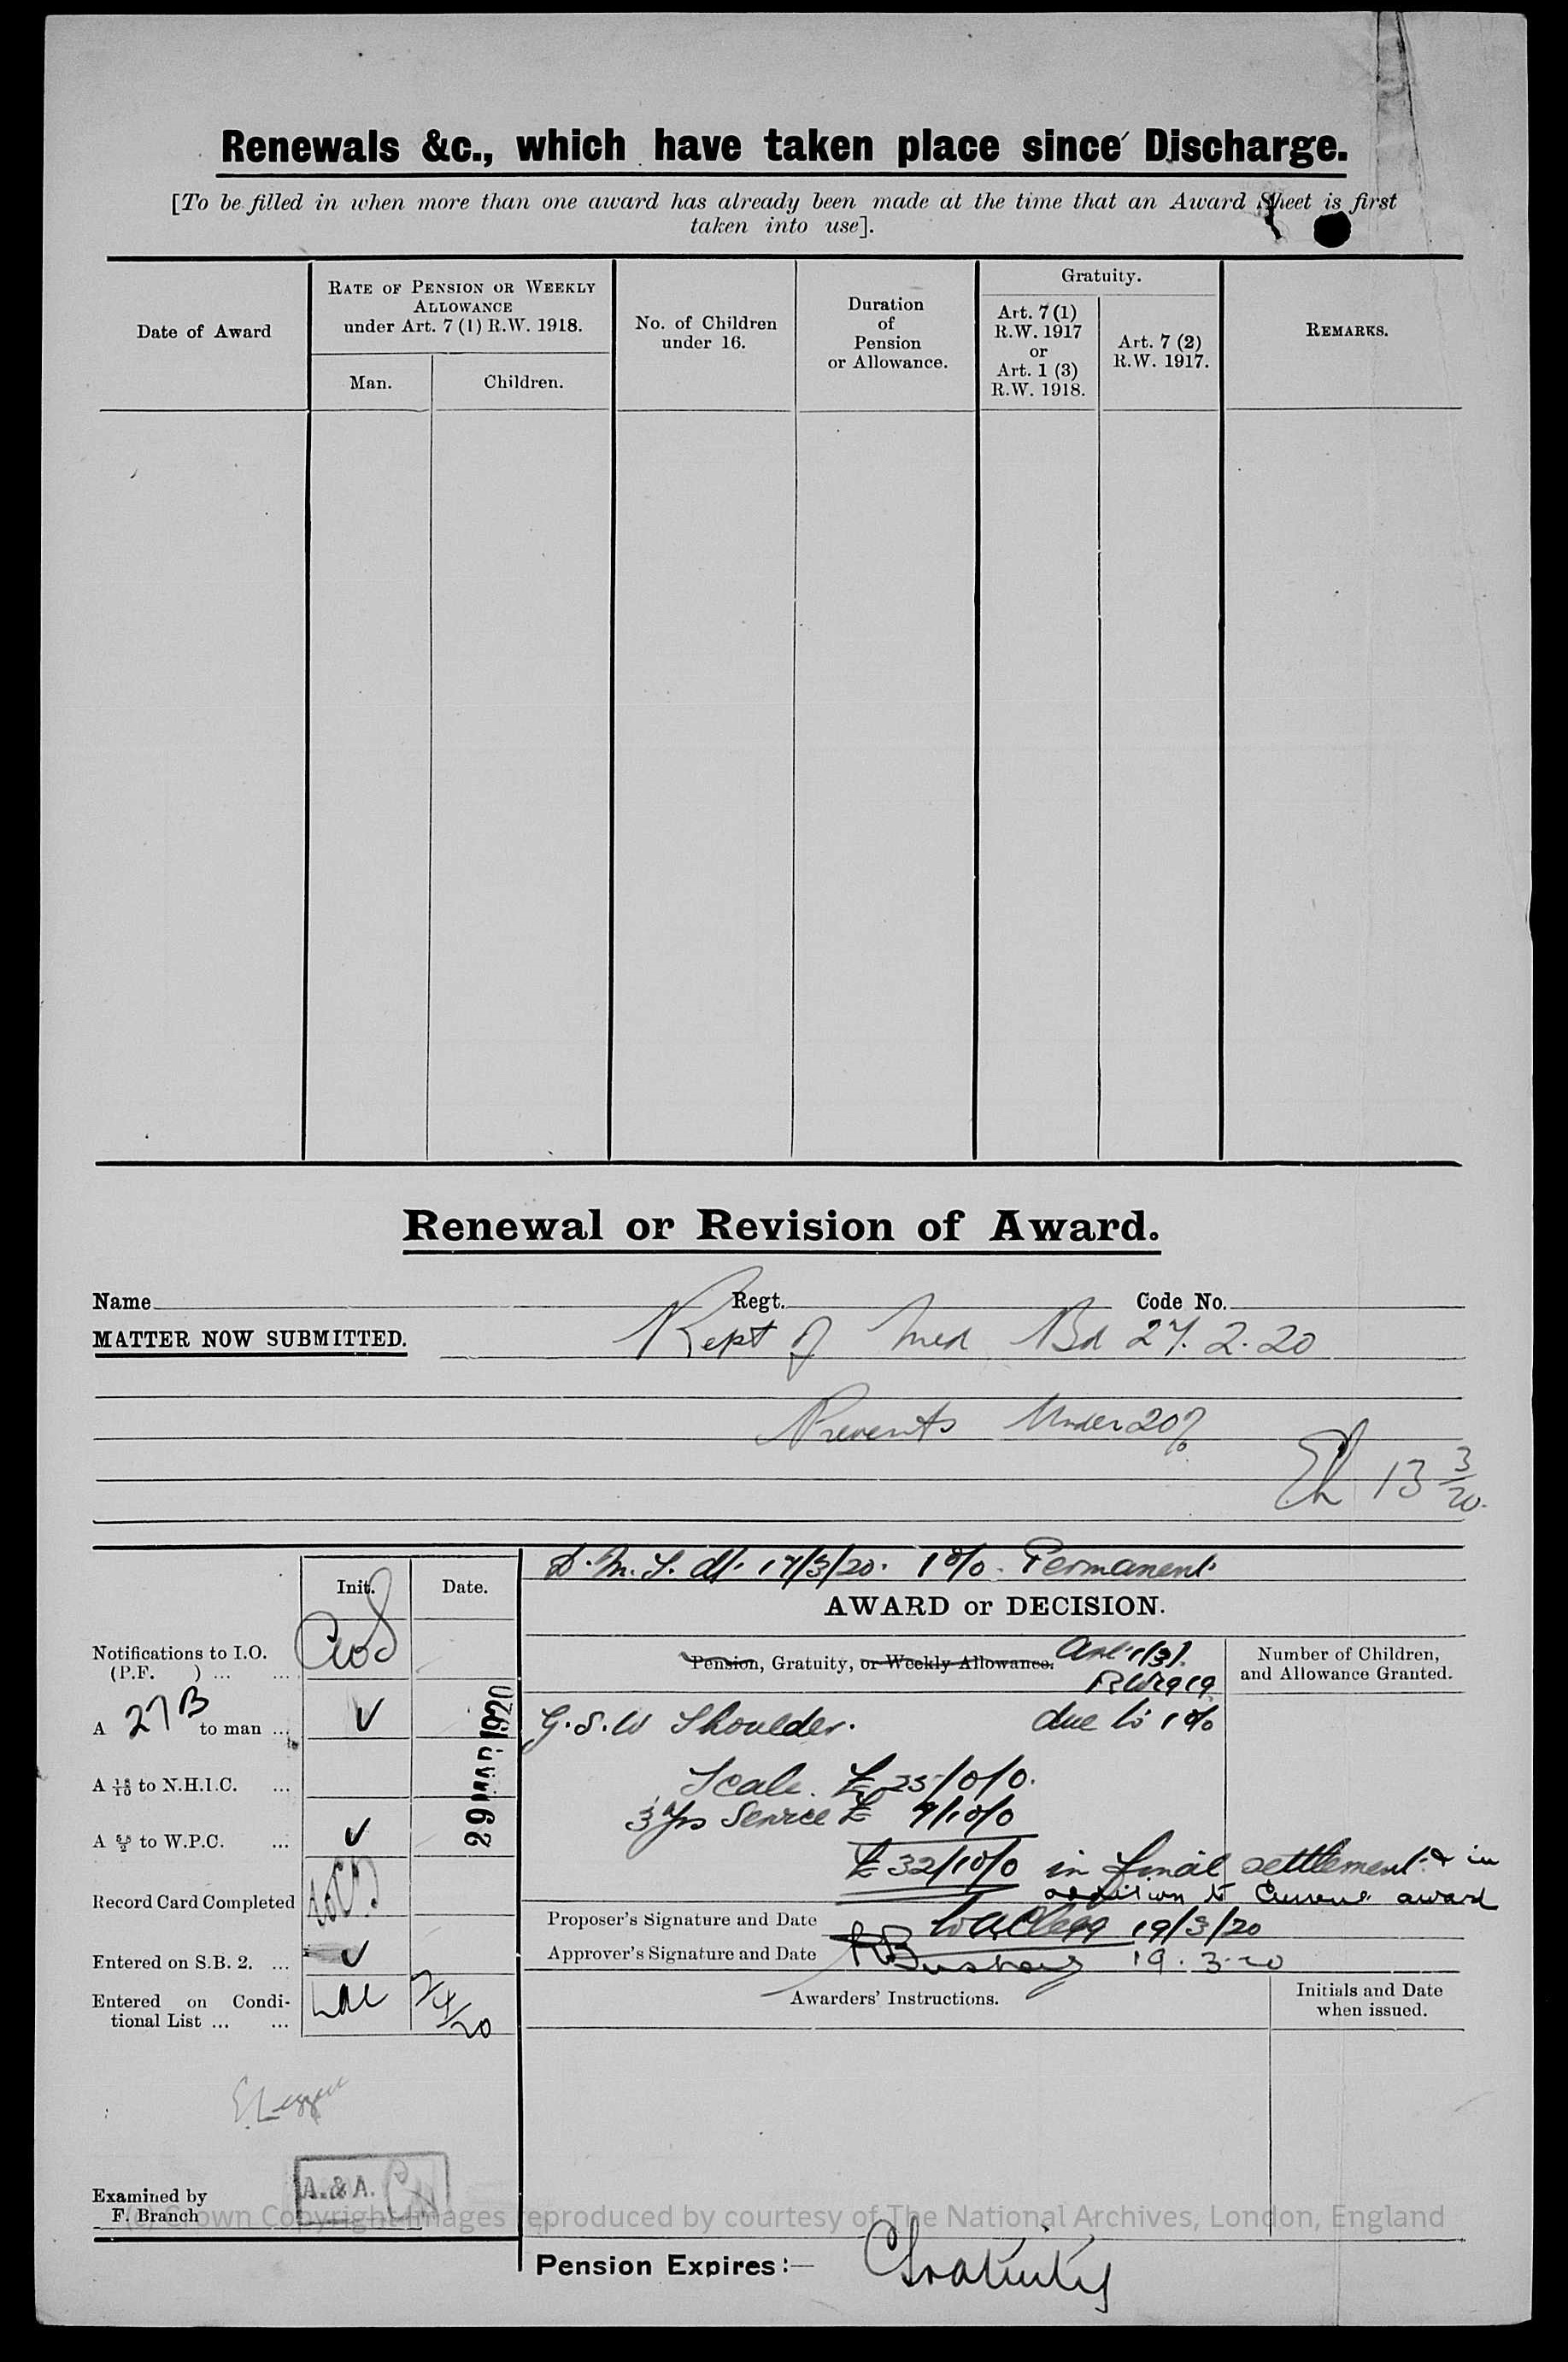 Renewals &c., which have taken place since Discharge.
[To be filled in when more than one award has already been made at the time that an Award Sheet is first
taken into use].
Date of Award
RATE OF PENSION OR WEEKLY
ALLOWANCE
under Art. 7 (1) R.W. 1918.
Man.
Children.
No. of Children
under 16.
Duration
of
Pension
or Allowance.
Gratuity.
Art. 7 (1)
R.W. 1917
or
Art. 1 (3)
R.W. 1918.
Art. 7 (2)
R.W. 1917.
REMARKS.
Renewal or Revision of Award.
Name Regt. Code No.
MATTER NOW SUBMITTED. Rept of Med Bd 27.2.20
Presents Under 20%
13 3/20.
D.M.S. dt. 17/3/20. 1%. Permanent.
Init. Date.
AWARD or DECISION.
Notifications to I.O.
(P.F. ) ... ...
A 27B to man ...
A 18/10 to N.H.I.C. ...
A to W.P.C. ...
Record Card Completed
Entered on S.B. 2. ...
Entered on Condi-
tional List ... ...
7/4/20
29 MAR 1920
Pension, Gratuity, or Weekly Allowance. Art 1(3).
RW1919
Number of Children,
and Allowance Granted.
G.S.W Shoulder. due to 1%
Scale. £25/0/0.
3 yrs Service £ 7/10/0
£32/10/0 in final settlement & in
addition to Current award
Proposer's Signature and Date 19/3/20
Approver's Signature and Date 19.3.20
Awarders' Instructions.
Initials and Date
when issued.
Examined by
F. Branch
A. & A.
(c) Crown Copyright Images reproduced by courtesy of The National Archives, London, England
Pension Expires:— Gratuity